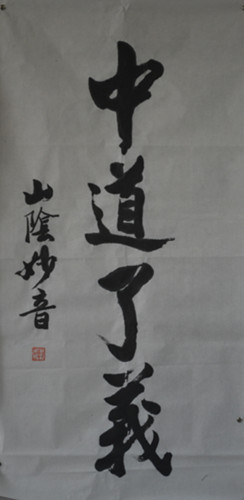 中道了義
山陰妙音